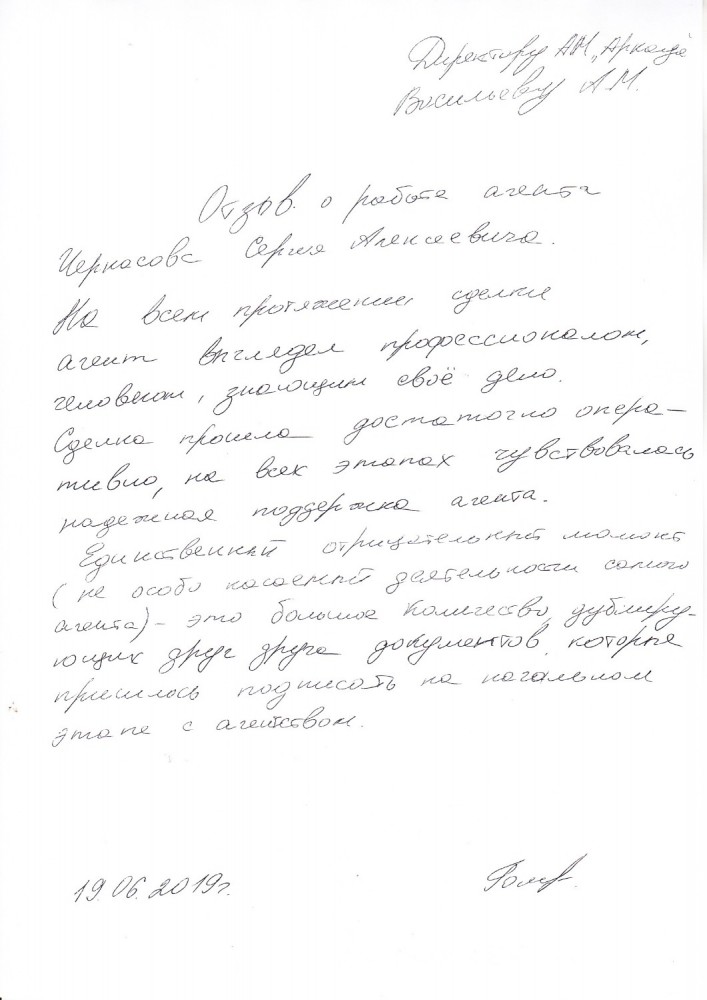 Директору АН „Аркада"
Васильеву А.М.
Отзыв о работе агента
Черкасова Сергея Алексеевича.
На всем протяжении сделки
агент выглядел профессионалом,
человеком, знающим своё дело.
Сделка прошла достаточно опера-
тивно, на всех этапах чувствовалась
надежная поддержка агента.
Единственный отрицательный момент
(не особо касаемый деятельности самого
агента) - это большое количество дублиру-
ющих друг друга документов, которые
пришлось подписать на начальном
этапе с агентством.
19.06.2019г.